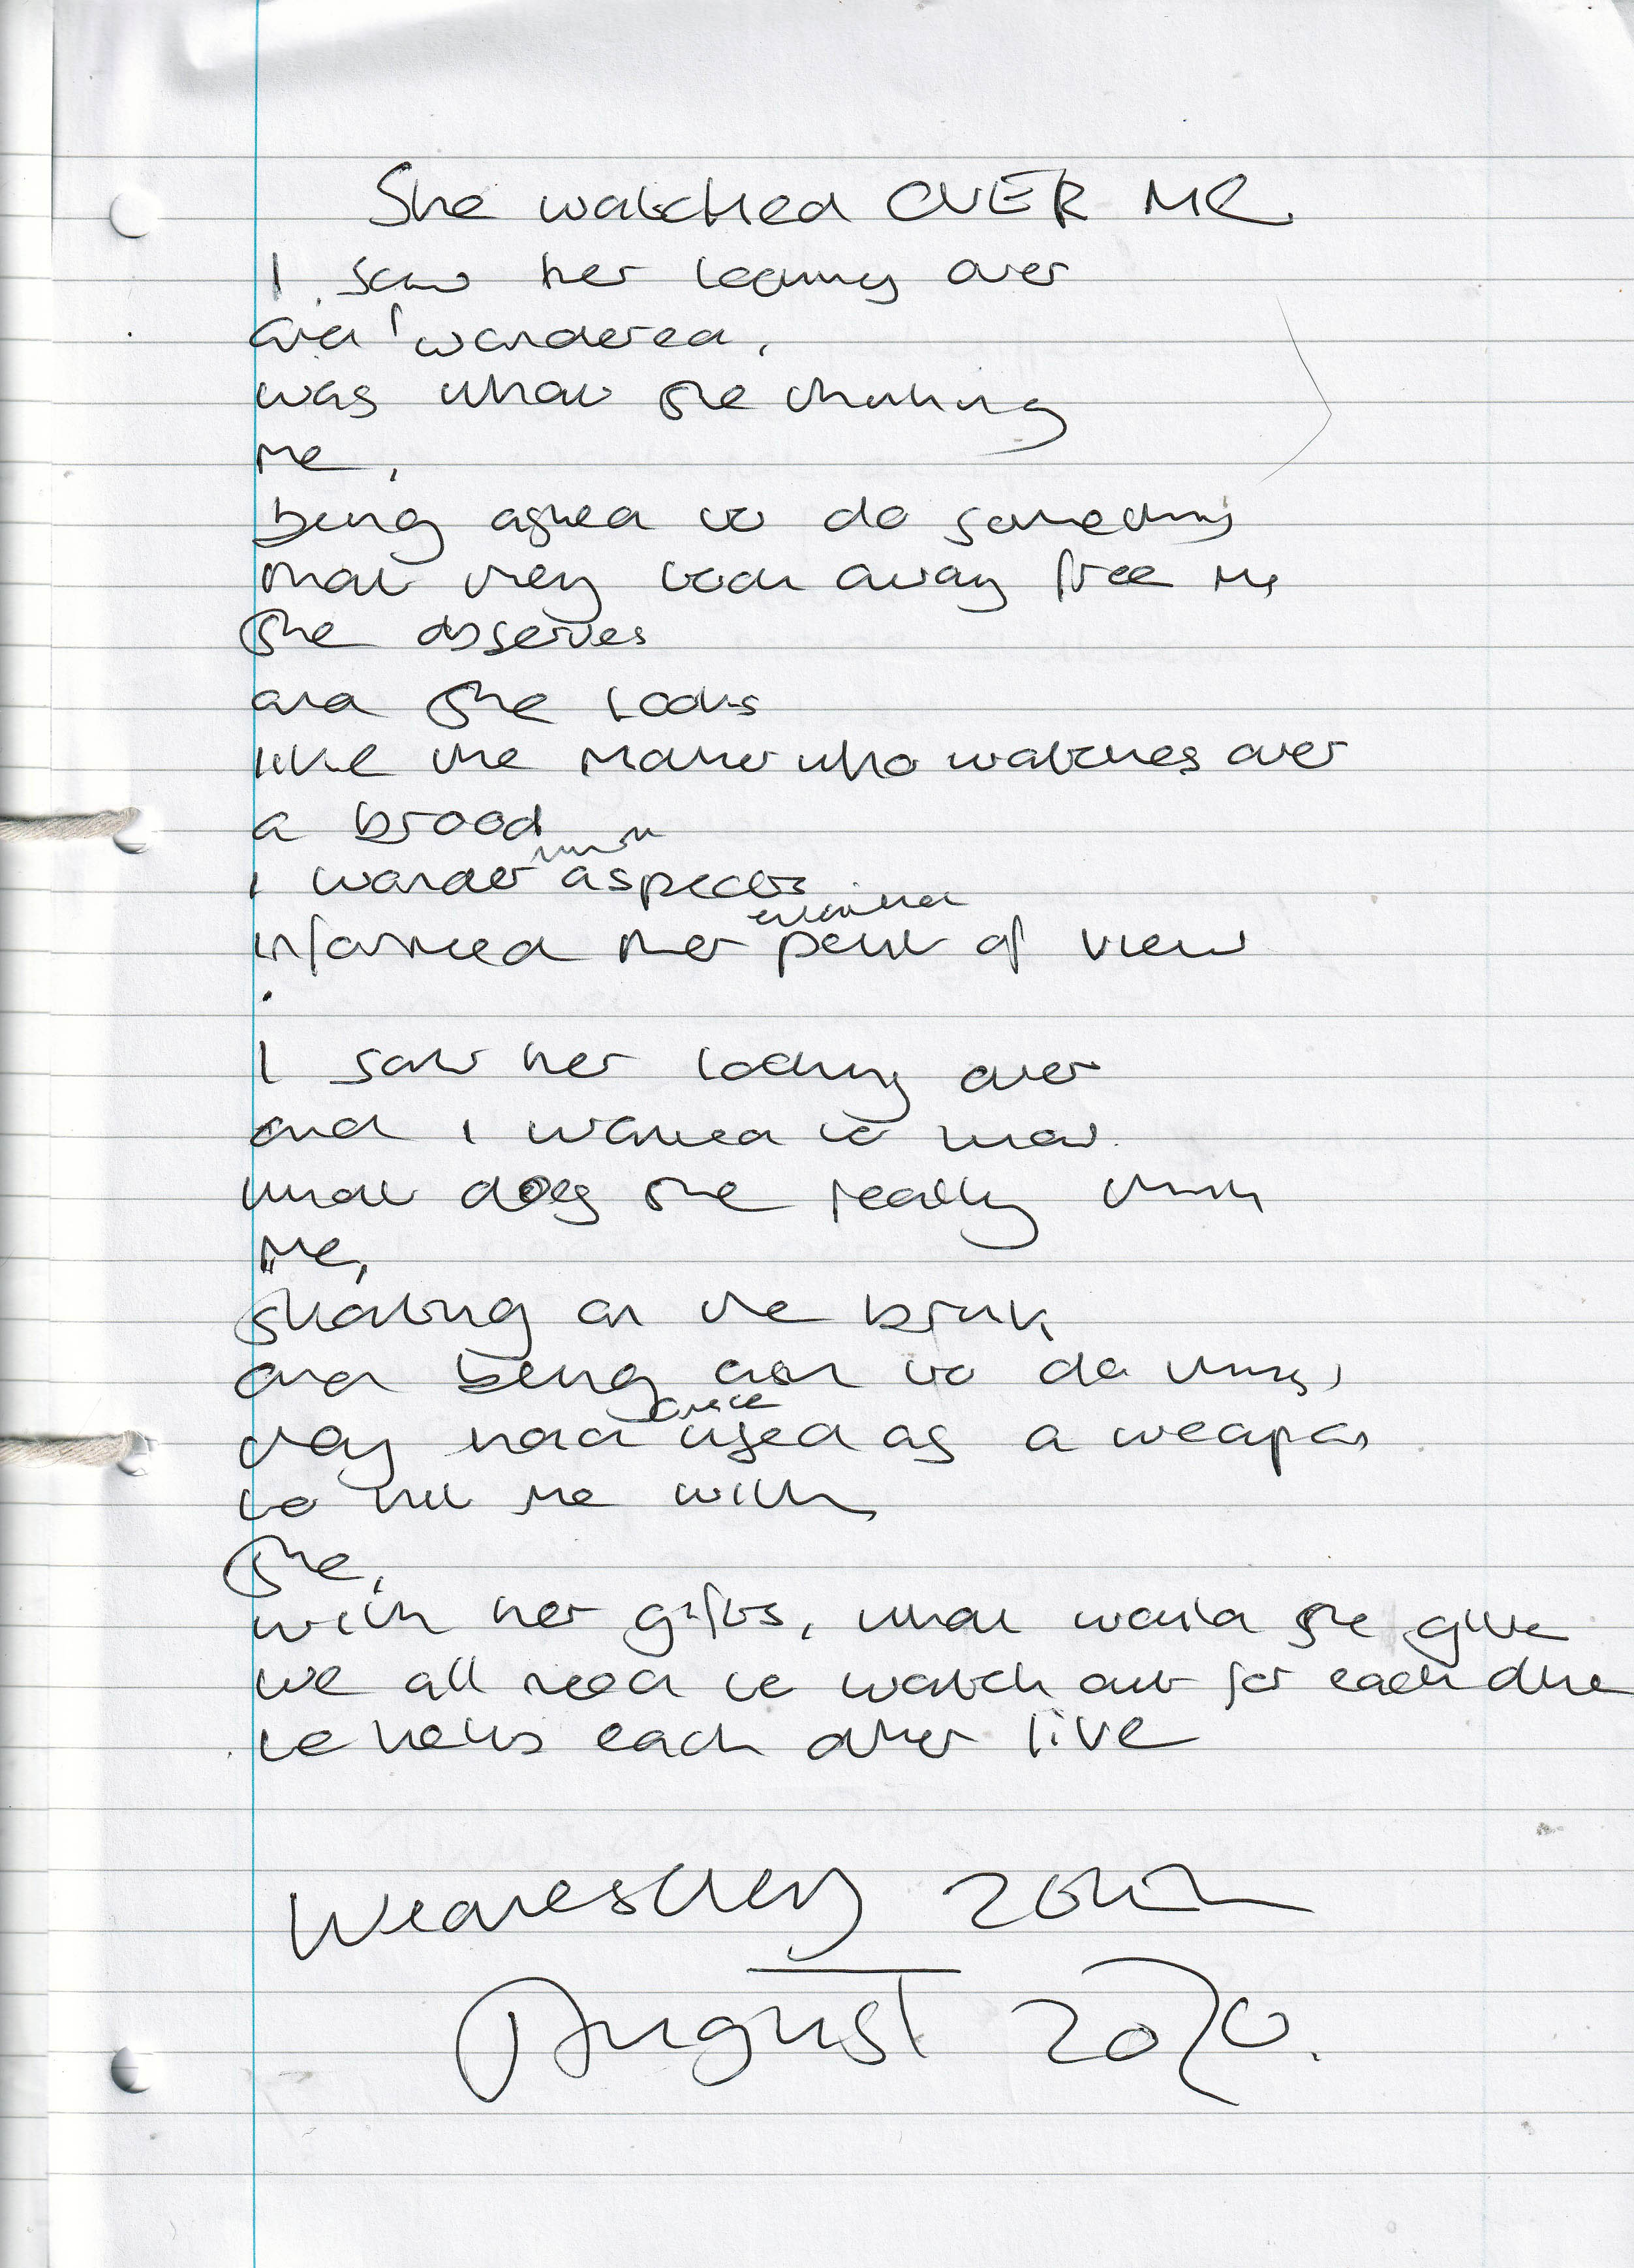 She watched OVER ME.
I saw her looking over
and I wondered,
was what she thinking
me,
being asked to do something
that they took away free me
She observes
and she looks
like the mother who watches over
a brood
I wonder aspects
informed her point of view
I saw her looking over
and I wanted to know
what does she really think
me,
skating on the brink
and being ask to do things,
they had once used as a weapon
to hit me with
She,
with her gifts, what would she give
we all need to watch out for each other
to help each other live
Wednesday
August 2020.